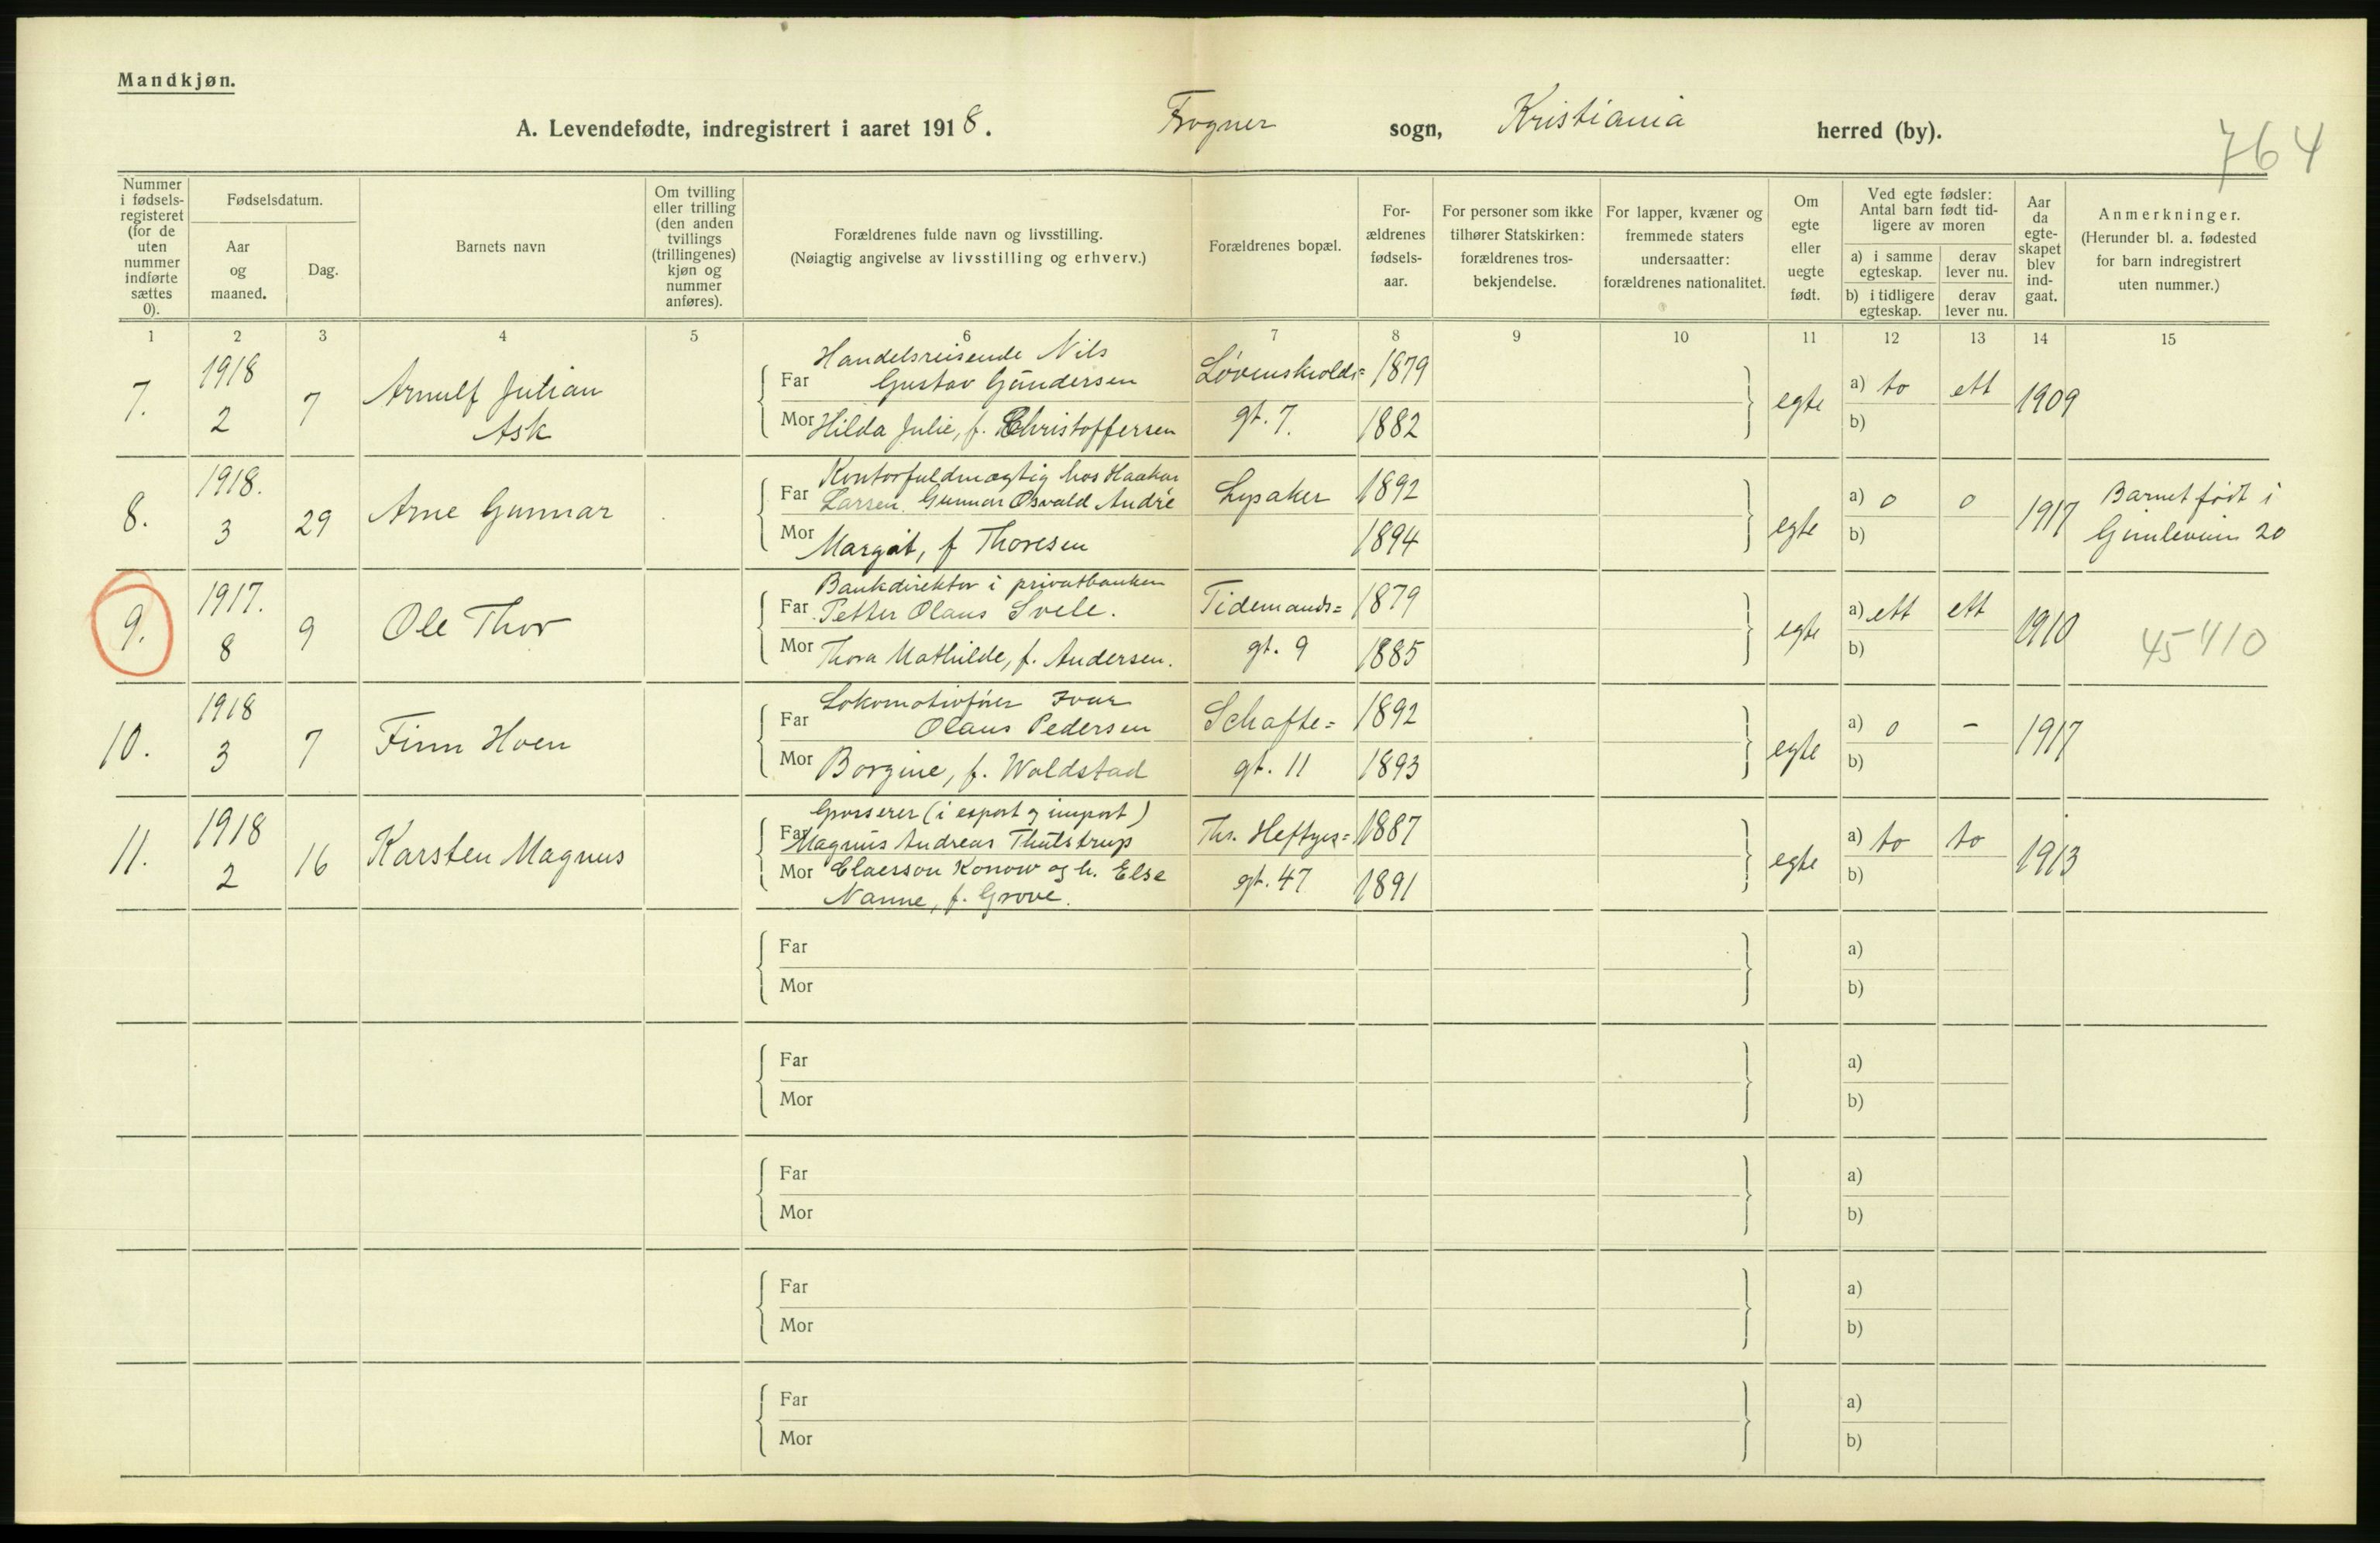 Mandkjøn.
A. Levendefødte, indregistrert i aaret 1918. Frogner sogn, Kristiania herred (by).
764
Nummer i fødsels- registeret (for de uten nummer indførte sættes 0).
Fødselsdatum.
Aar og maaned.
Dag.
Barnets navn
Om tvilling eller trilling (den anden tvillings (trillingenes) kjøn og nummer anføres).
Forældrenes fulde navn og livsstilling.
(Nøiagtig angivelse av livsstilling og erhverv.)
Forældrenes bopæl.
For- ældrenes fødsels- aar.
For personer som ikke tilhører Statskirken: forældrenes tros- bekjendelse.
For lapper, kvæner og fremmede staters undersaatter: forældrenes nationalitet.
Om egte eller uegte født.
Ved egte fødsler: Antal barn født tid- ligere av moren
a) i samme egteskap.
derav lever nu.
b) i tidligere egteskap.
derav lever nu.
Aar da egte- skapet blev ind- gaat.
Anmerkninger.
(Herunder bl. a. fødested for barn indregistrert uten nummer.)
1 2 3 4 5 6 7 8 9 10 11 12 13 14 15
7. 1918 2 7 Arnulf Julian Ask
Handelsreisende Nils
Far Gustav Gündersen
Mor Hilda Julie, f. Christoffersen
Løvenskiolds= gt. 7.
1879
1882
egte a) to ett b) 1909
8. 1918. 3 29 Arne Gunnar
Kontorfuldmægtig hos Haakon
Far Larsen. Gunnar Osvald André
Mor Margit, f Thoresen
Lysaker
1892
1894
egte a) 0 0 b) 1917
Barnet født i
20
9. 1917. 8 9 Ole Thor
Bankdirektør i privatbanken
Far Petter Olaus Svele.
Mor Thora Mathilde, f. Andersen.
Tidemands= gt. 9
1879
1885
egte a) ett ett b) 1910
10. 1918 3 7 Finn Hoen
Lokomotivfører Ivar
Far Olaus Pedersen
Mor Borgine, f. Woldstad
Schafte= gt. 11
1892
1893
egte a) 0 – b) 1917
11. 1918 2 16 Karsten Magnus
Grosserer (i export og import)
Far Magnus Andreas Thulstrup
Mor Claesson Konow og h. Else
Nanne, f. Grove.
Ths. Heftyes= gt. 47
1887
1891
egte a) to to b) 1913
Far
Mor
a)
b)
Far
Mor
a)
b)
Far
Mor
a)
b)
Far
Mor
a)
b)
Far
Mor
a)
b)